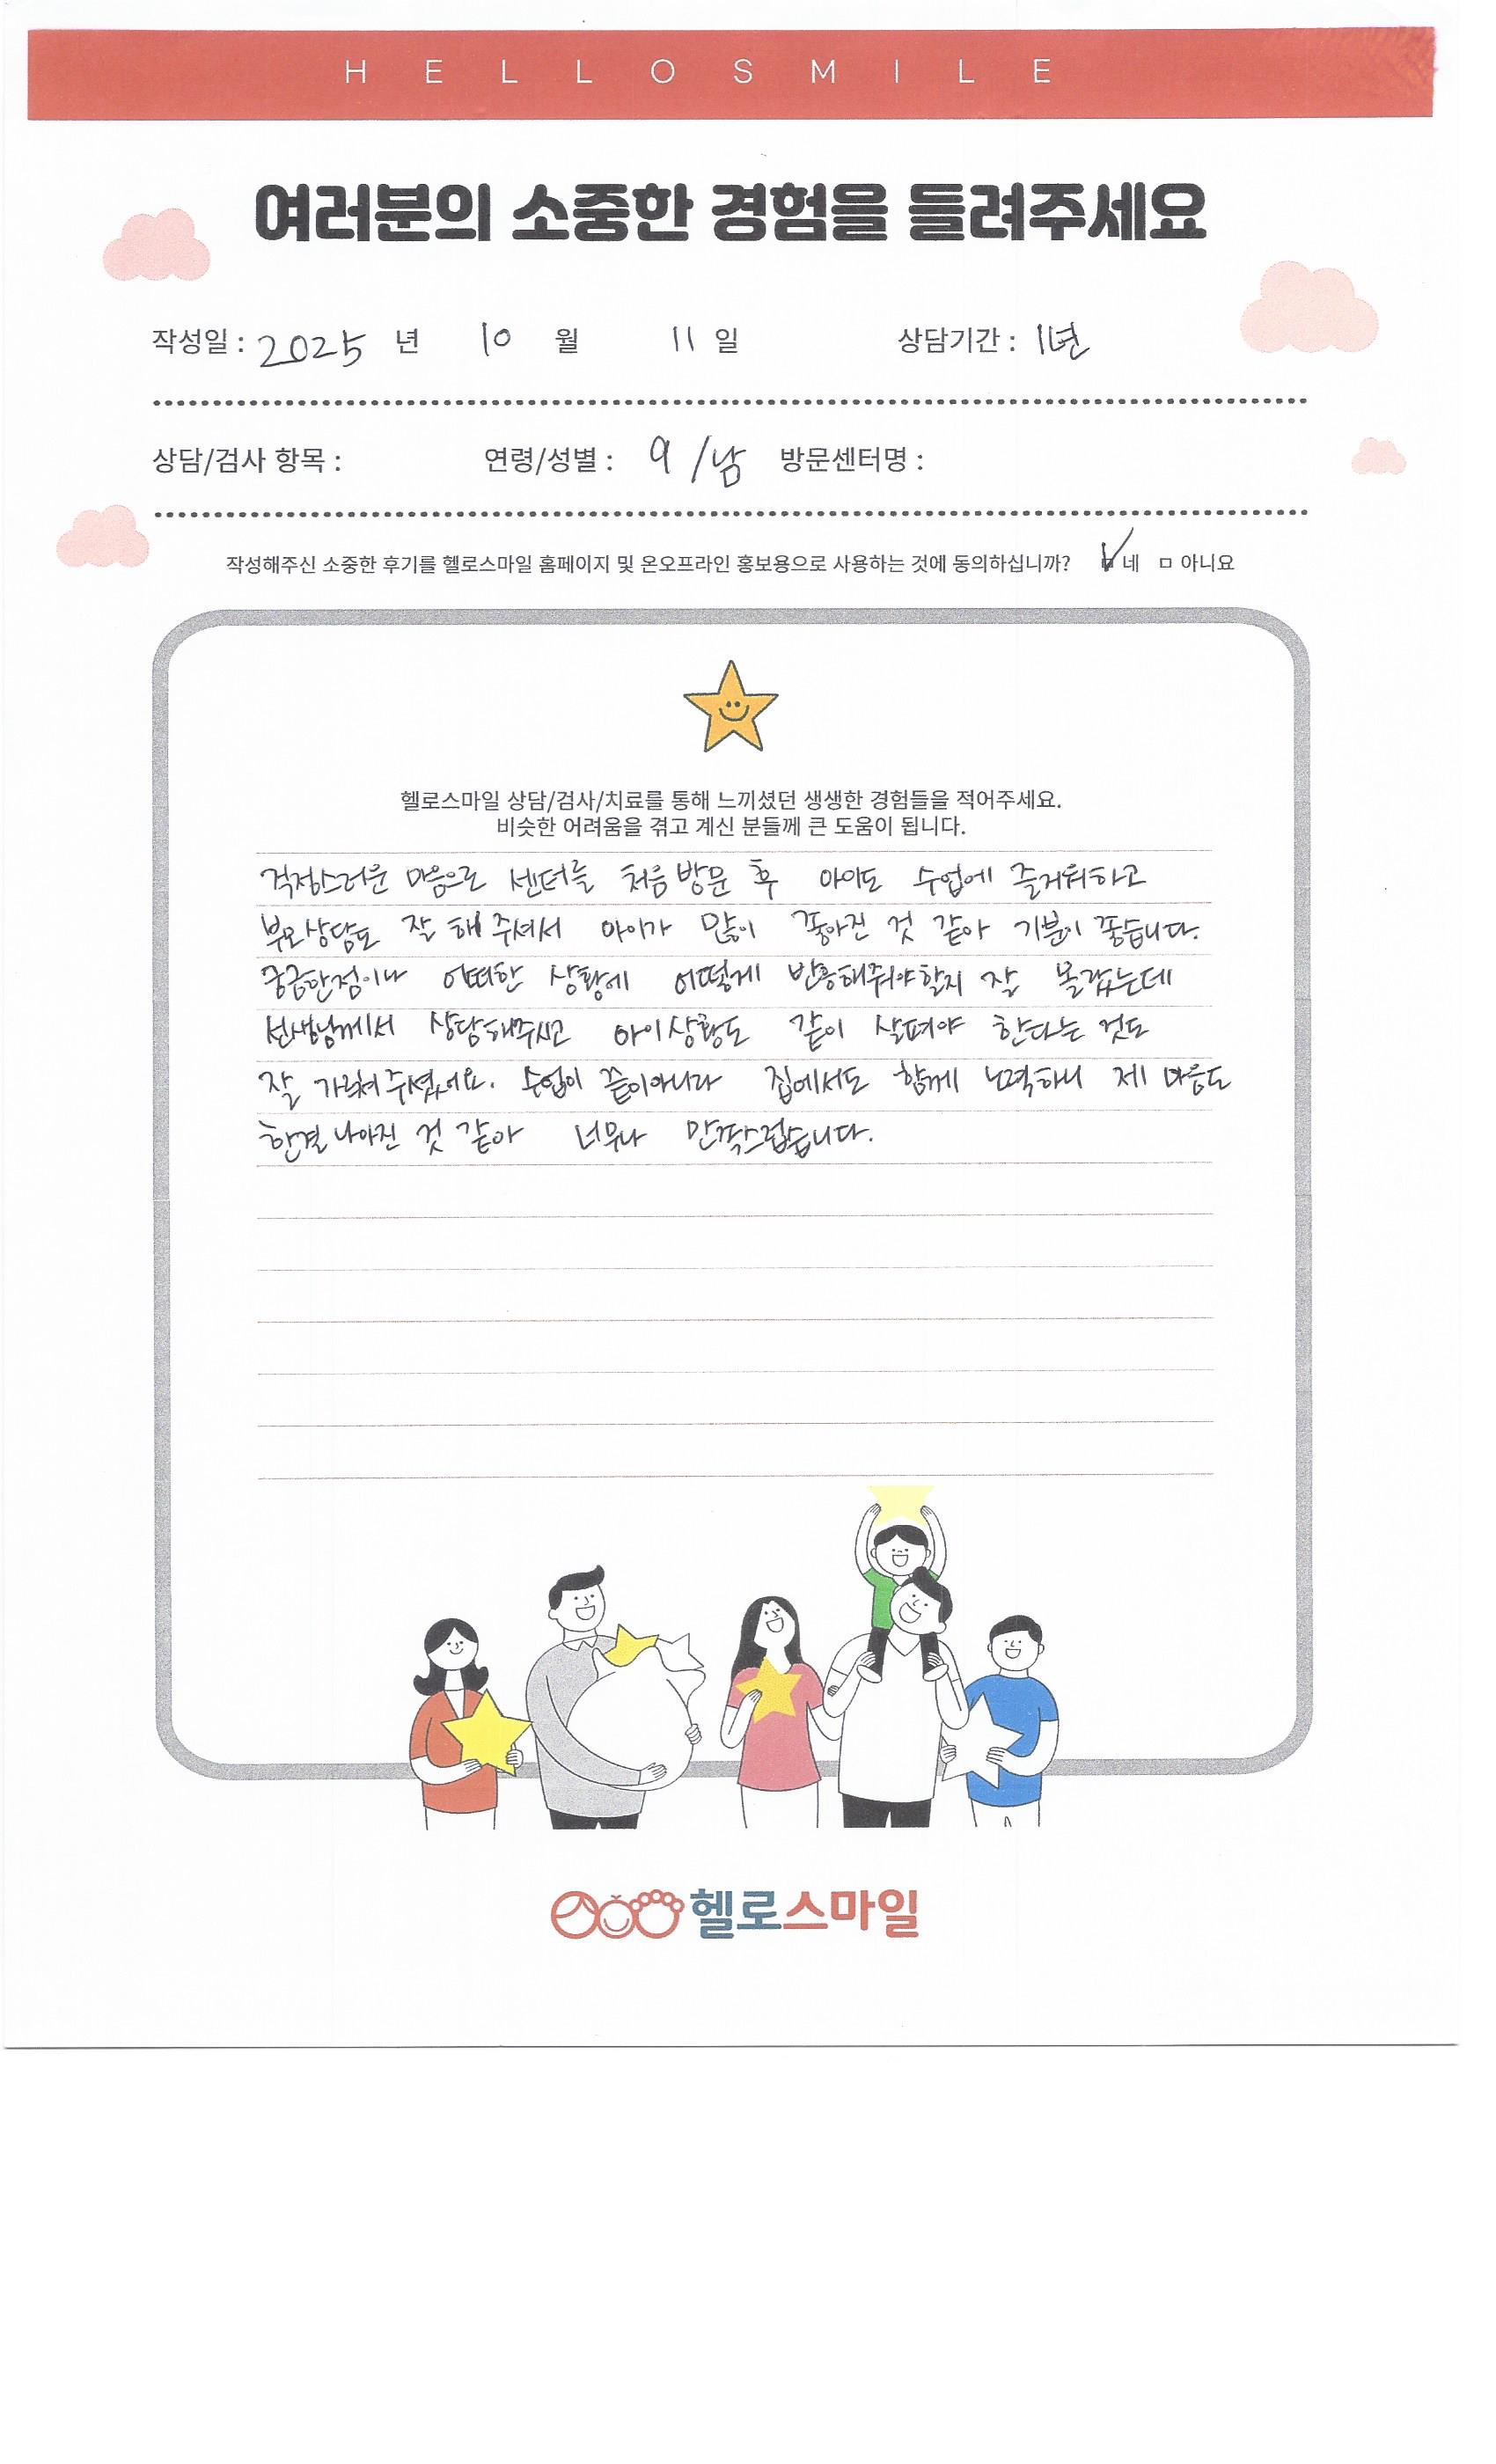 HELLOSMILE
여러분의 소중한 경험을 들려주세요
작성일 : 2025 년 10 월 11 일 상담기간 : 1년
상담/검사 항목 : 연령/성별 : 9 /남 방문센터명 :
작성해주신 소중한 후기를 헬로스마일 홈페이지 및 온오프라인 홍보용으로 사용하는 것에 동의하십니까? ☑네 ㅁ 아니요
헬로스마일 상담/검사/치료를 통해 느끼셨던 생생한 경험들을 적어주세요.
비슷한 어려움을 겪고 계신 분들께 큰 도움이 됩니다.
걱정스러운 마음으로 센터를 처음 방문 후 아이도 수업에 즐거워하고
부모상담도 잘 해 주셔서 아이가 많이 좋아진 것 같아 기분이 좋습니다.
궁금한점이나 어떠한 상황에 어떻게 반응해줘야할지 잘 몰랐는데
선생님께서 상담해주시고 아이상황도 같이 살펴야 한다는 것도
잘 가르쳐 주셨어요. 수업이 끝이아니라 집에서도 함께 노력하니 제 마음도
한결 나아진 것 같아 너무나 만족스럽습니다.
헬로스마일